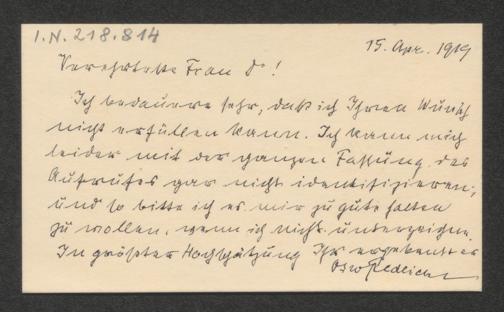 I.N. 218.814
15. Apr. 1919
Verehrteste Frau Dr!
Ich bedauere sehr, daß ich Ihren Wunsch
nicht erfüllen kann. Ich kann mich
leider mit der ganzen Fassung des
Aufrufes gar nicht identifizieren,
und so bitte ich es mir zu gute halten
zu wollen, wenn ich nicht unterzeichne.
In größter Hochschätzung Ihr ergebenster
Osw Redlich